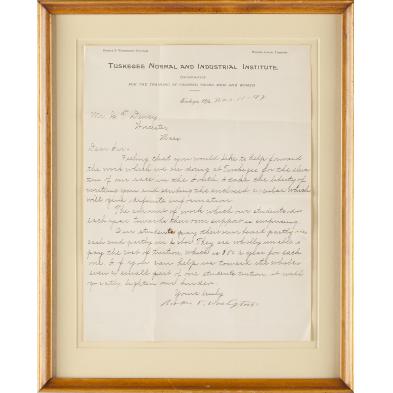 TUSKEGEE NORMAL AND INDUSTRIAL INSTITUTE.
INCORPORATED
FOR THE TRAINING OF COLORED YOUNG MEN AND WOMEN
Tuskegee, Ala.,
Mr. Dewey,
Worcester
Mass
Dear Sir:
Feeling that you would like to help forward
the work which we are doing at Tuskegee for the
of our race in the South I take the liberty of
writing you and sending the enclosed circular which
will give definite information.
The amount of work which our students do
each year towards their own support is surprising.
Our students pay their own board partly in
cash and partly in labor. They are wholly unable to
pay the cost of tuition which is $50 a year for each
one. If you can help us toward the whole
even a small part of one students tuition it will
greatly lighten our burden.
Yours truly
Booker T. Washington